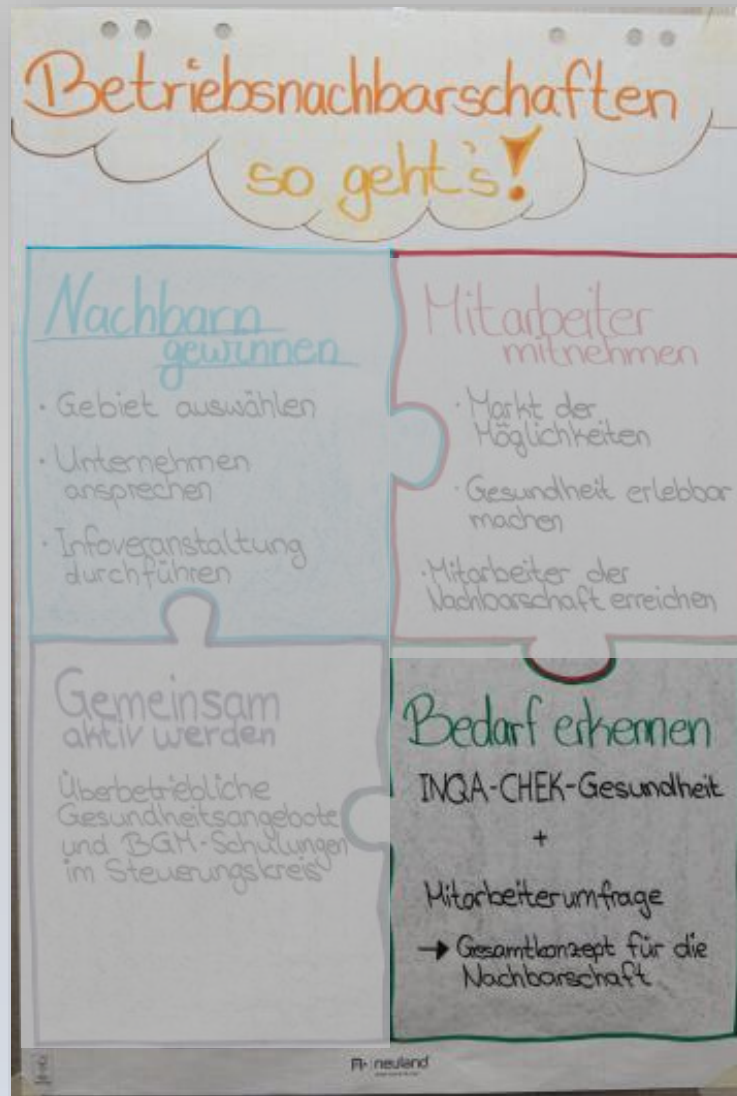 Betriebsnachbarschaften
so geht's!
Nachbarn
gewinnen
· Gebiet auswählen
· Unternehmen
ansprechen
· Infoveranstaltung
durchführen
Mitarbeiter
mitnehmen
· Markt der
Möglichkeiten
· Gesundheit erlebbar
machen
· Mitarbeiter der
Nachbarschaft erreichen
Gemeinsam
aktiv werden
Überbetriebliche
Gesundheitsangebote
und BGM-Schulungen
im Steuerungskreis
Bedarf erkennen
INQA-CHEK-Gesundheit
+
Mitarbeiterumfrage
→ Gesamtkonzept für die
Nachbarschaft
neuland